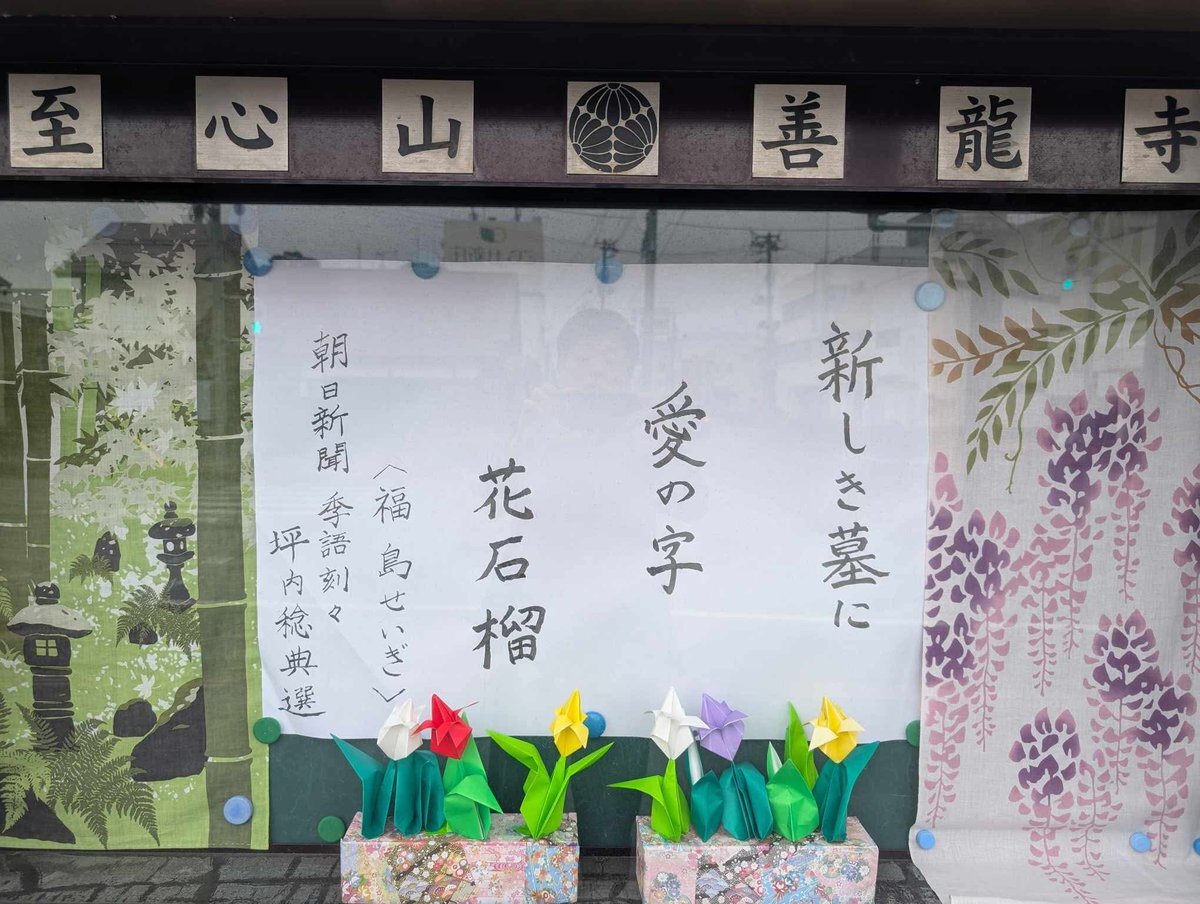 至心山 善龍寺
新しき墓に
愛の字
花石榴
〈福島せいぎ〉
朝日新聞 季語刻々
坪内稔典選